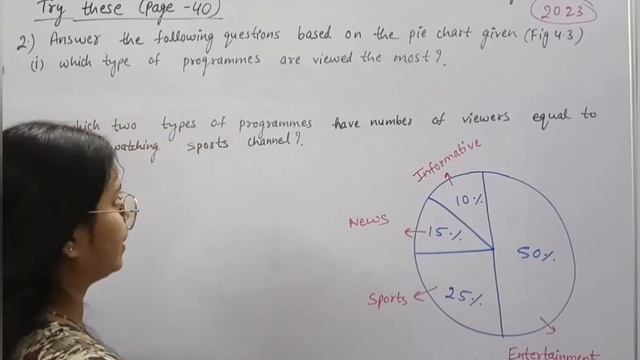 Try these (Page -40)
2023
2.) Answer the following questions based on the pie chart given (Fig 4.3)
(i) which type of programmes are viewed the most?
which two types of programmes have number of viewers equal to
watching sports channel?
Informative
10%
News
15%
50%
Sports
25%
Entertainment